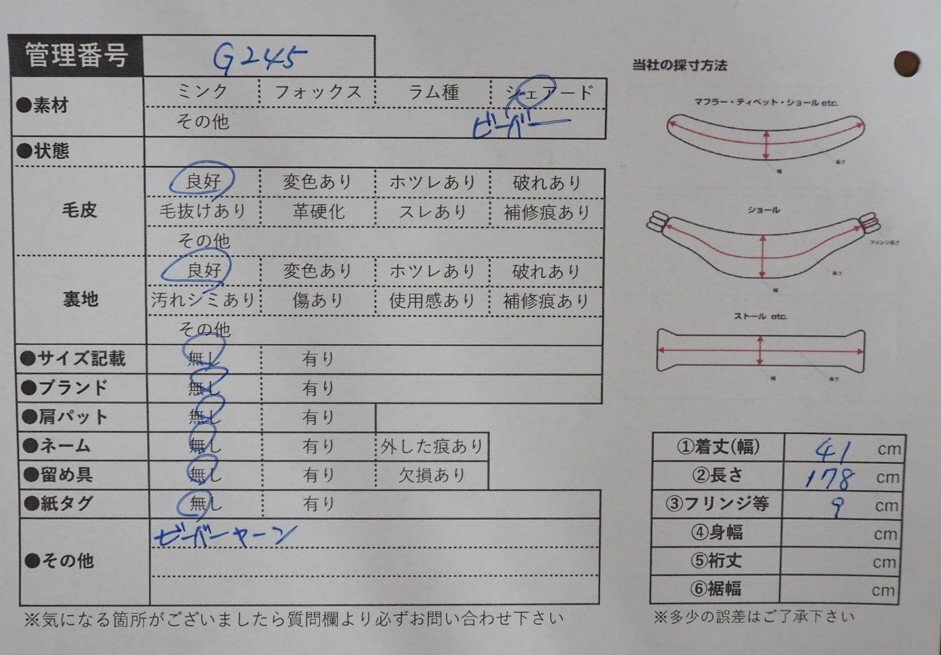 管理番号 G245
●素材 ミンク フォックス ラム種 シェアード
その他 ビーバー
●状態
毛皮 良好 変色あり ホツレあり 破れあり
毛抜けあり 革硬化 スレあり 補修痕あり
その他
裏地 良好 変色あり ホツレあり 破れあり
汚れシミあり 傷あり 使用感あり 補修痕あり
その他
●サイズ記載 無し 有り
●ブランド 無し 有り
●肩パット 無し 有り
●ネーム 無し 有り 外した痕あり
●留め具 無し 有り 欠損あり
●紙タグ 無し 有り
●その他 ビーバーヤーン
※気になる箇所がございましたら質問欄より必ずお問い合わせ下さい
当社の採寸方法
マフラー・ティペット・ショール etc.
長さ
幅
ショール
フリンジ長さ
長さ
幅
ストール etc.
幅
長さ
①着丈(幅) 41 cm
②長さ 178 cm
③フリンジ等 9 cm
④身幅 cm
⑤裄丈 cm
⑥裾幅 cm
※多少の誤差はご了承下さい